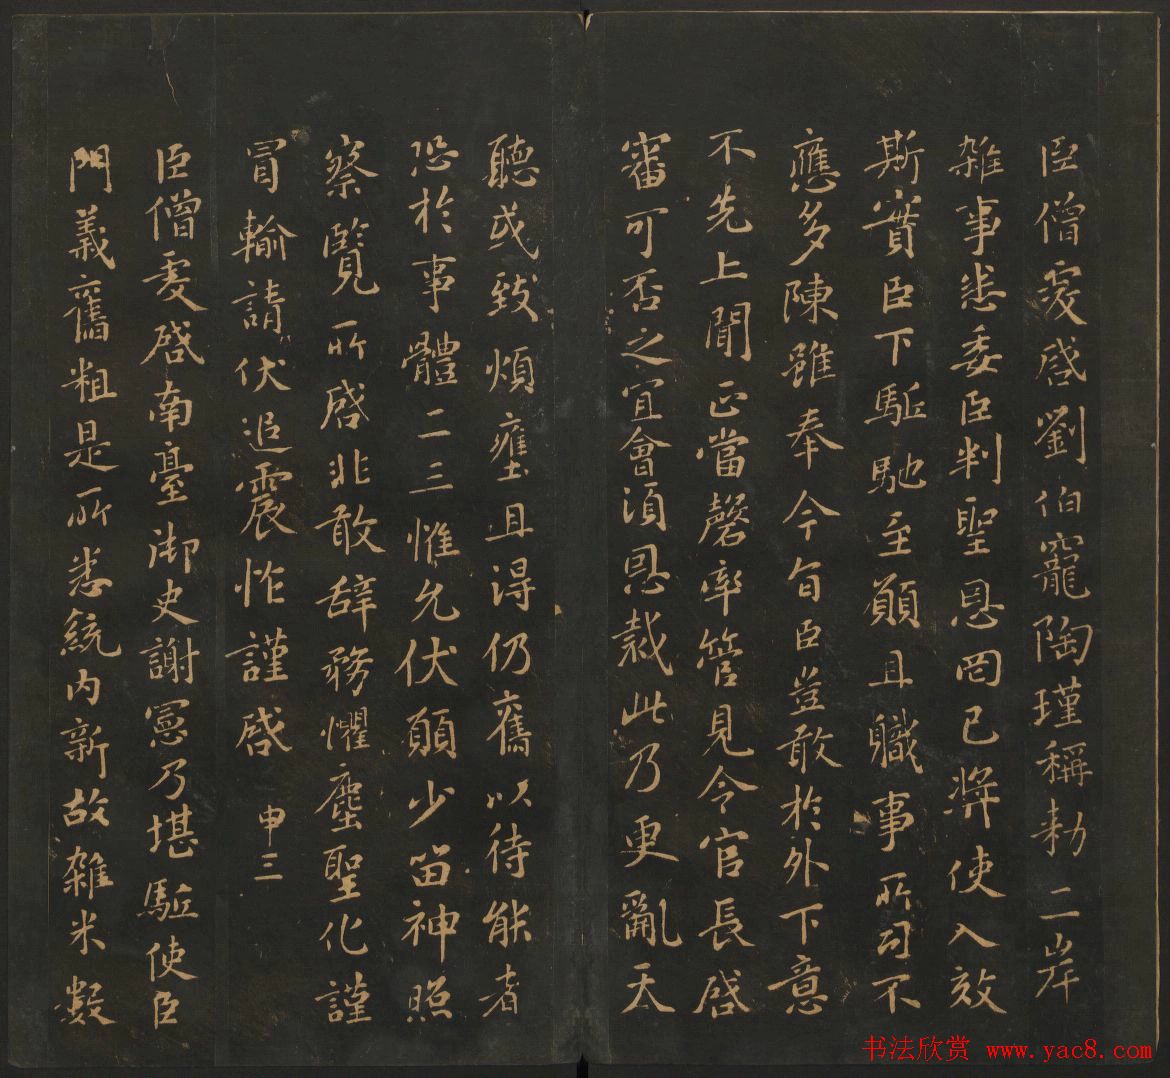 臣僧虔啓劉伯寵陶瑾稱勑二岸
雜事悉委臣判聖恩罔已將使入效
斯實臣下駈馳至願且職事所司不
應多陳雖奉令旨臣豈敢於外下意
不先上聞正當罄率管見令官長啓
審可否之宜會須恩裁此乃更亂天
聽或致煩壅且得仍舊以待能者
恐於事體二三惟允伏願少留神照
察覽所啓非敢辞務懼塵聖化謹
冒輸請伏追震怍謹啓 申三
臣僧虔啓南臺御史謝憲乃堪駈使臣
門義舊粗是所悉統内新故雜米數
书法欣赏 www.yac8.com